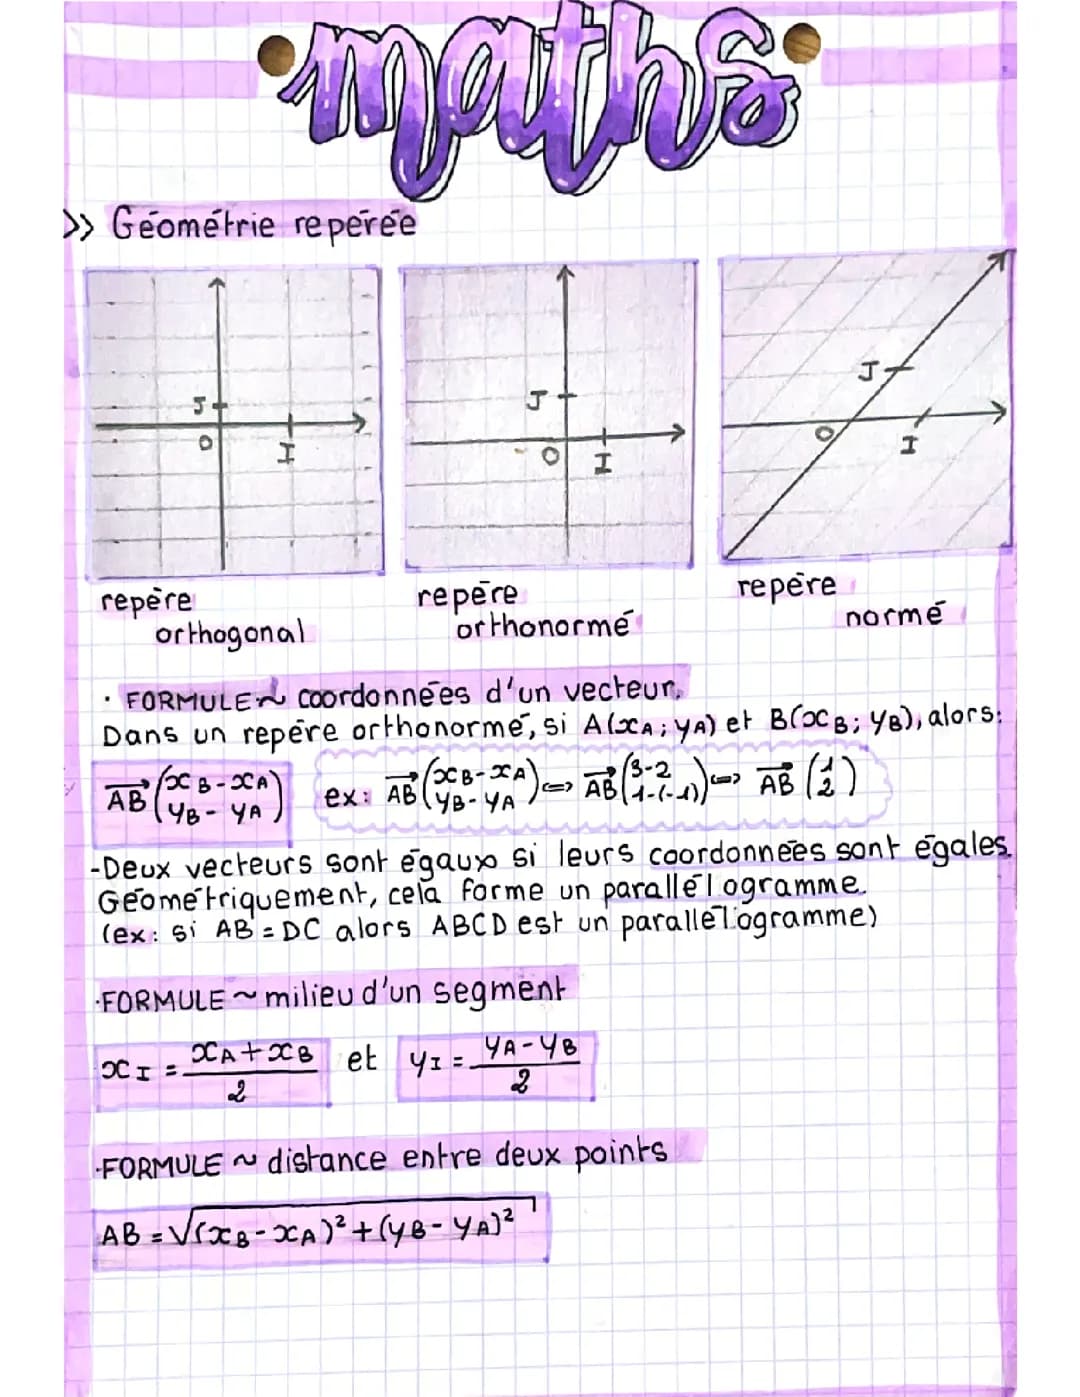 maths
>> Géométrie repérée
J
O
I
J
O
I
J
O
I
repère
orthogonal
repère
orthonormé
repère
normé
· FORMULE ~ coordonnées d'un vecteur.
Dans un repère orthonormé, si A(xA; yA) et B(xB; yB), alors:
AB→ (xB-xA / yB-yA) ex: AB→ (xB-xA / yB-yA) <=> AB→ (3-2 / 1-(-1)) <=> AB→ (1 / 2)
-Deux vecteurs sont égaux si leurs coordonnées sont égales.
Géométriquement, cela forme un parallélogramme.
(ex: si AB = DC alors ABCD est un parallélogramme)
·FORMULE ~ milieu d'un segment
xI = (xA + xB)/2 et yI = (yA - yB)/2
·FORMULE ~ distance entre deux points
AB = √(xB - xA)² + (yB - yA)²